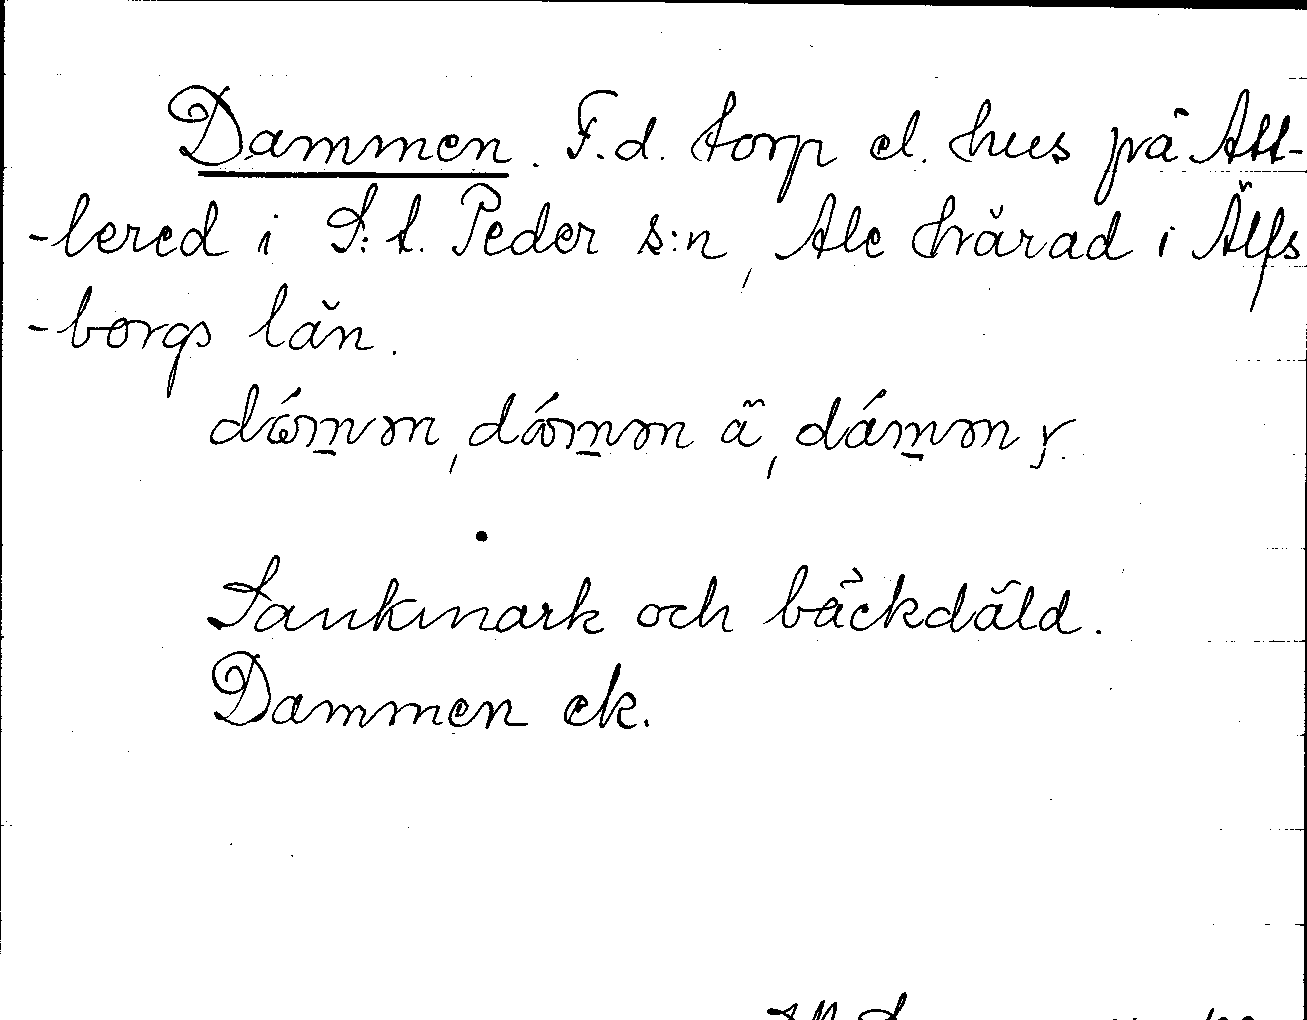 Dammen. F.d. torp el. hus på Att-
-lered i S:t. Peder s:n, Ale härad i Älfs
-borgs län.
Sankmark och bäckdäld.
Dammen ek.